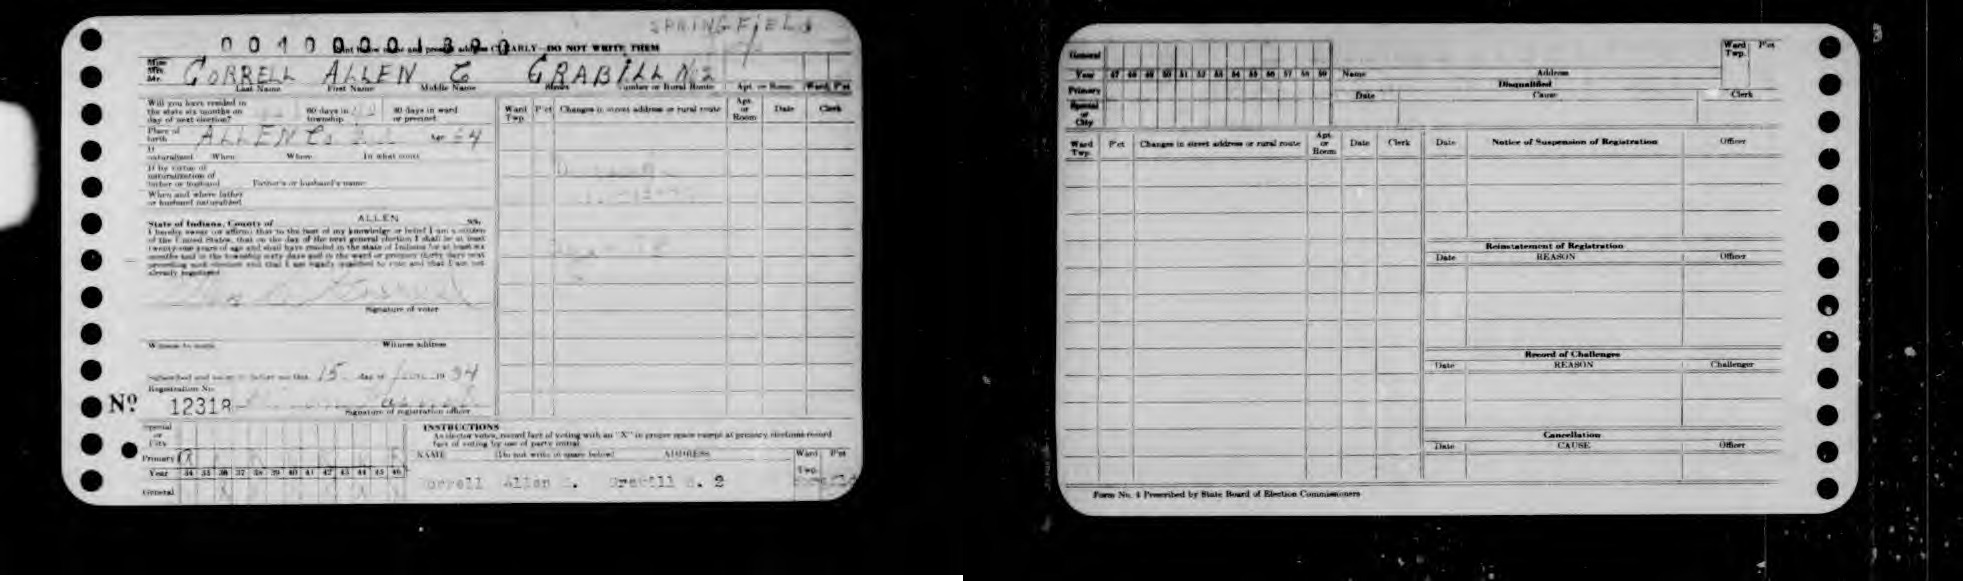 SPRINGFIELD
00100001300
CLEARLY—DO NOT WRITE THEM
Miss
Mrs.
Mr.
GORRELL ALLEN C GRABILL No 2
Last Name First Name Middle Name Street Number or Rural Route Apt. or Room Ward P'ct
Will you have resided in
the state six months on
day of next election?
60 days in
township
30 days in ward
or precinct
Place of
birth ALLEN Co Age 64
If
naturalized When Where In what court
If by virtue of
naturalization of
father or husband Father's or husband's name
When and where father
or husband naturalized
State of Indiana, County of ALLEN ss.
I hereby swear (or affirm) that to the best of my knowledge or belief I am a citizen
of the United States, that on the day of the next general election I shall be at least
twenty-one years of age and shall have resided in the state of Indiana for at least six
months and in the township sixty days and in the ward or precinct thirty days next
preceding such election and that I am legally qualified to vote and that I am not
already registered
Signature of voter
Witness to mark Witness address
Subscribed and sworn to before me this 15 day of June 1934
Registration No.
No 12318
Signature of registration officer
Ward
Twp.
P'ct
Changes in street address or rural route
Apt.
or
Room
Date
Clerk
Special
or
City
Primary
Year 34 35 36 37 38 39 40 41 42 43 44 45 46
General
INSTRUCTIONS
As elector votes, record fact of voting with an "X" in proper space except at primary elections record
fact of voting by use of party initial
NAME (Do not write in space below) ADDRESS Ward P'ct
Twp.
Gorrell Allen C. Grabill R. 2
General
Year 47 48 49 50 51 52 53 54 55 56 57 58 59
Primary
Special
or
City
Name Address
Ward
Twp.
P'ct
Disqualified
Date Cause Clerk
Ward
Twp.
P'ct
Changes in street address or rural route
Apt.
or
Room
Date
Clerk
Date Notice of Suspension of Registration Officer
Reinstatement of Registration
Date REASON Officer
Record of Challenges
Date REASON Challenger
Cancellation
Date CAUSE Officer
Form No. 4 Prescribed by State Board of Election Commissioners